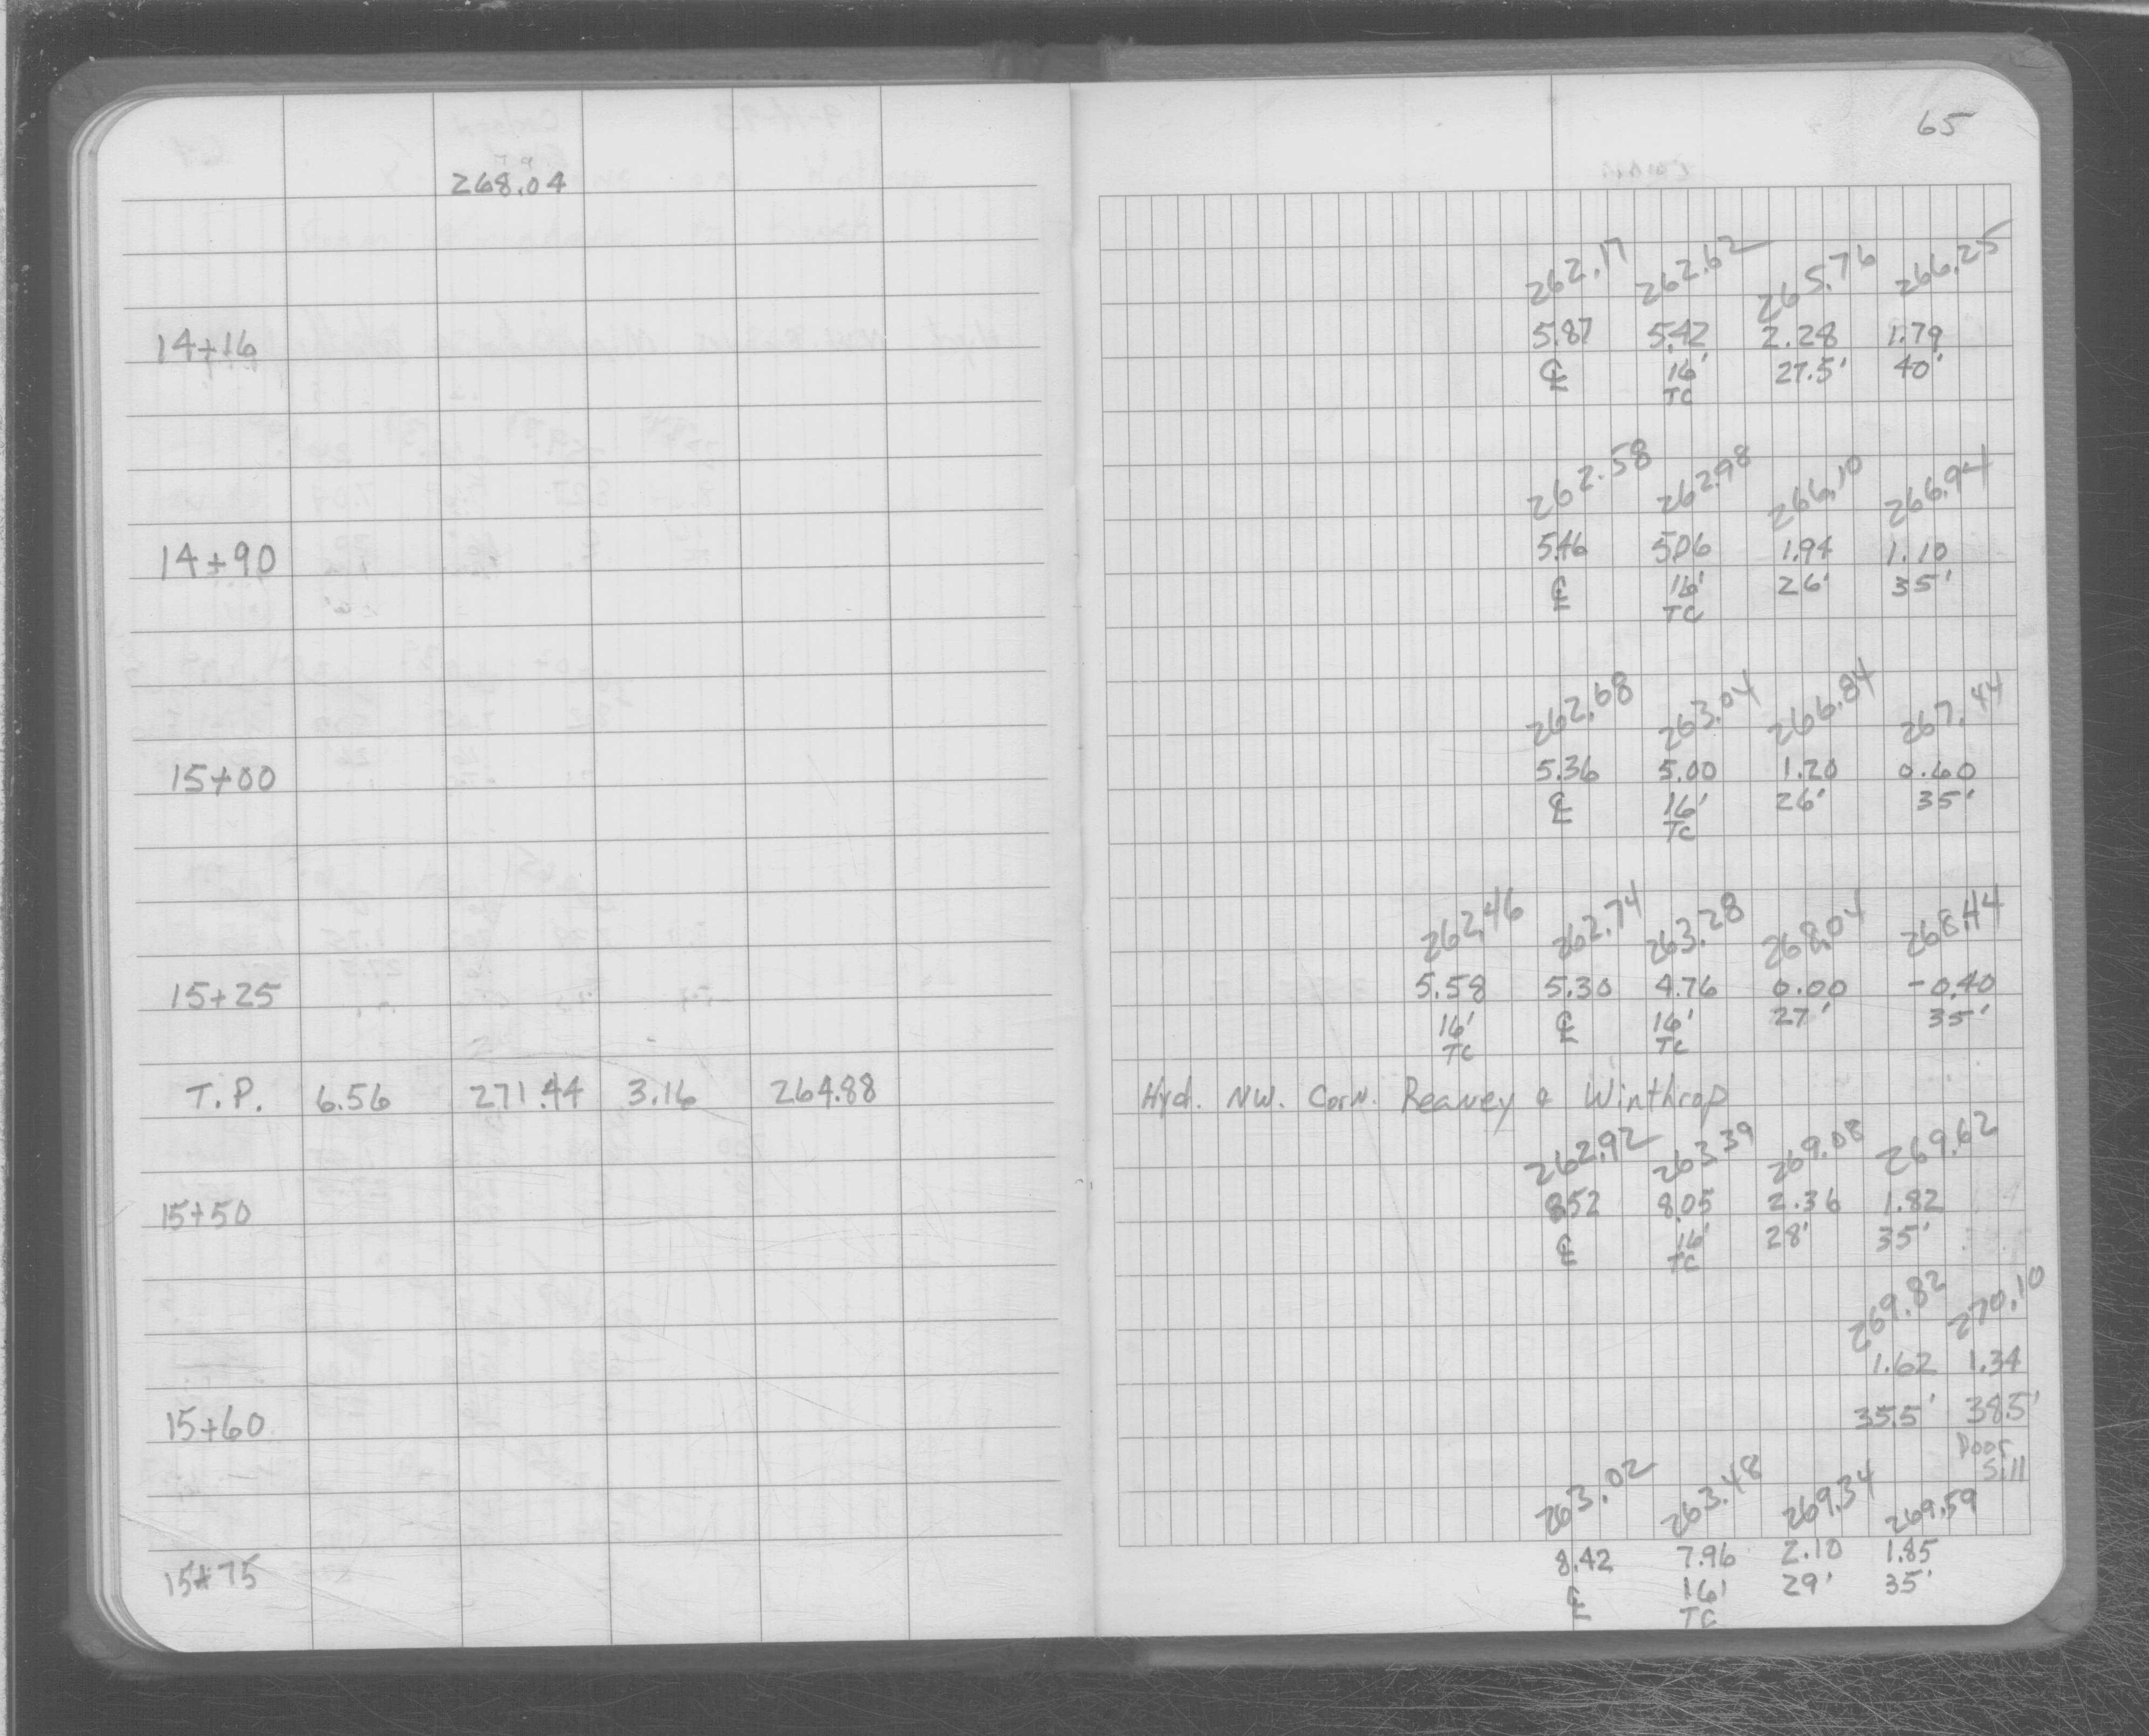 65
268.04
262.17 262.62 265.76 266.25
14+16 5.87 5.42 2.28 1.79
℄ 16' 27.5' 40'
TC
262.58 262.98 266.10 266.94
14+90 5.46 5.06 1.94 1.10
℄ 16' 26' 35'
TC
262.68 263.04 266.84 267.44
15+00 5.36 5.00 1.20 0.60
℄ 16' 26' 35'
TC
262.46 262.74 263.28 268.04 268.44
15+25 5.58 5.30 4.76 0.00 -0.40
16' ℄ 16' 27' 35'
TC TC
T.P. 6.56 271.44 3.16 264.88 Hyd. NW. Corn. Reaney & Winthrop
262.92 263.39 269.08 269.62
15+50 8.52 8.05 2.36 1.82
℄ 16' 28' 35'
TC
269.82 270.10
1.62 1.34
15+60 35.5' 38.5'
Door
Sill
263.02 263.48 269.34 269.59
15+75 8.42 7.96 2.10 1.85
℄ 16' 29' 35'
TC